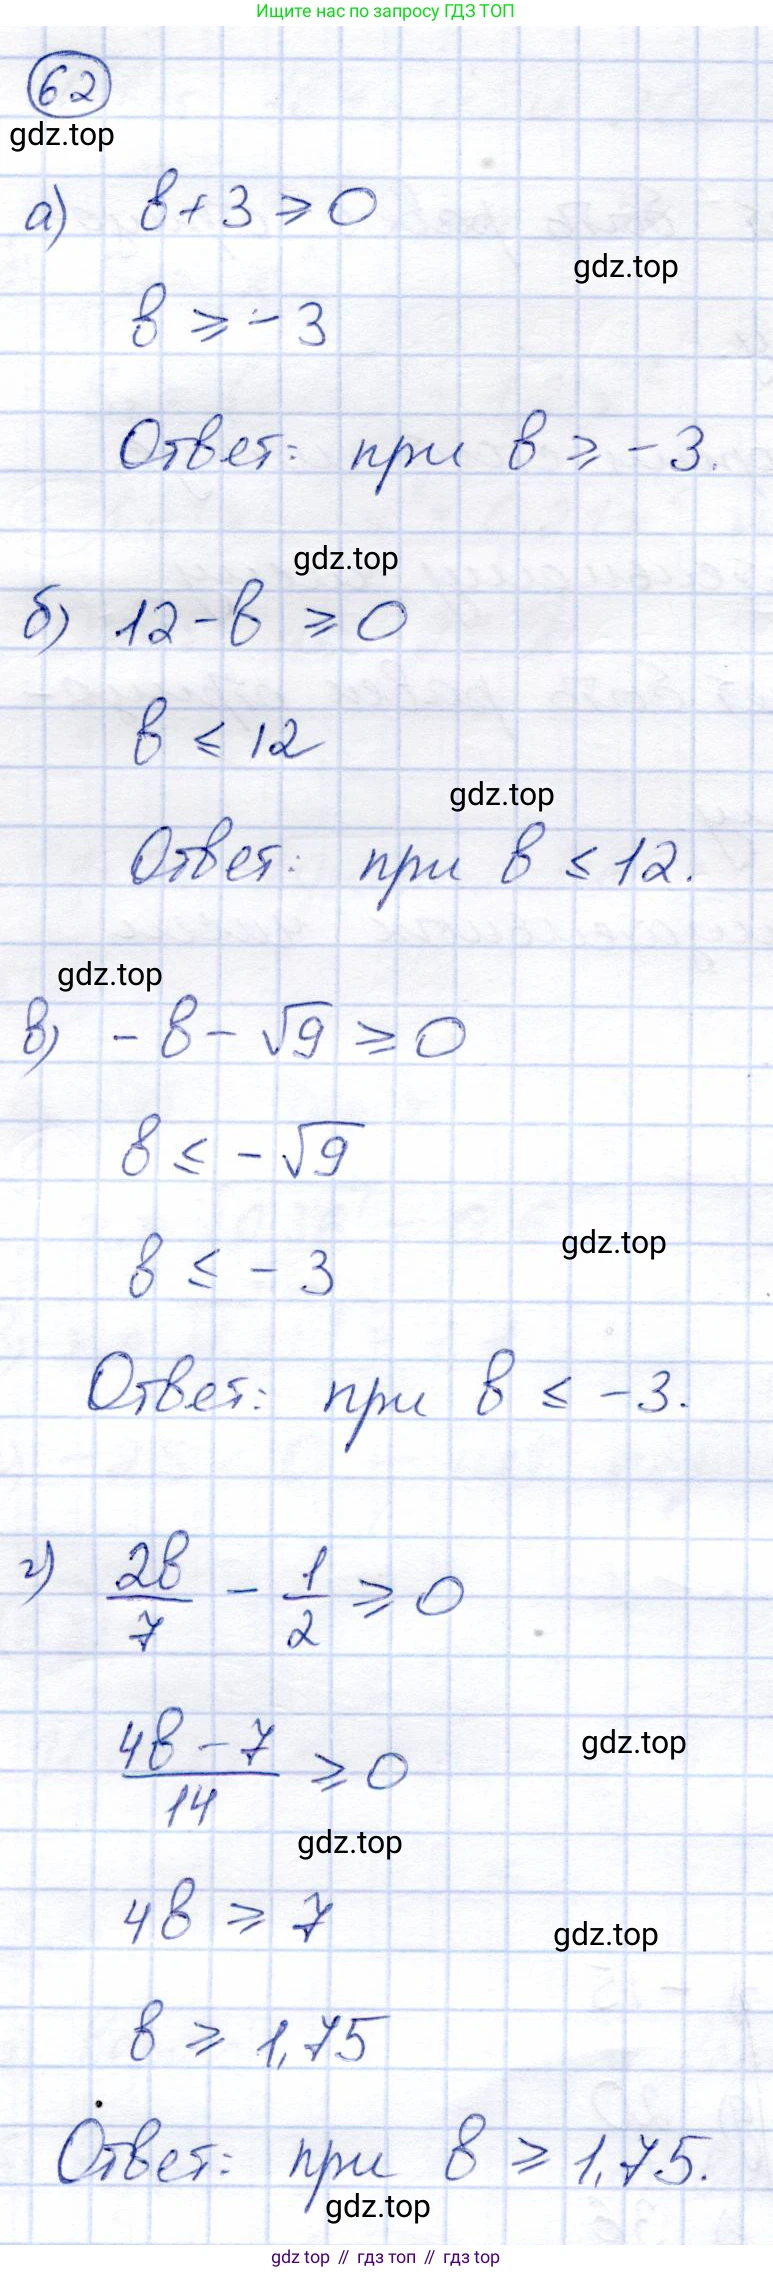 Ищите нас по запросу ГДЗ ТОП
62
gdz.top
а) в + 3 ⩾ 0
gdz.top
в ⩾ - 3
Ответ: при в ⩾ - 3.
gdz.top
б) 12 - в ⩾ 0
в ⩽ 12
gdz.top
Ответ: при в ⩽ 12.
gdz.top
в) - в - √9 ⩾ 0
в ⩽ - √9
gdz.top
в ⩽ - 3
Ответ: при в ⩽ - 3.
г) 2в/7 - 1/2 ⩾ 0
gdz.top
4в - 7/14 ⩾ 0
gdz.top
4в ⩾ 7
gdz.top
в ⩾ 1,75
Ответ: при в ⩾ 1,75.
gdz.top
gdz top // гдз топ // гдз top